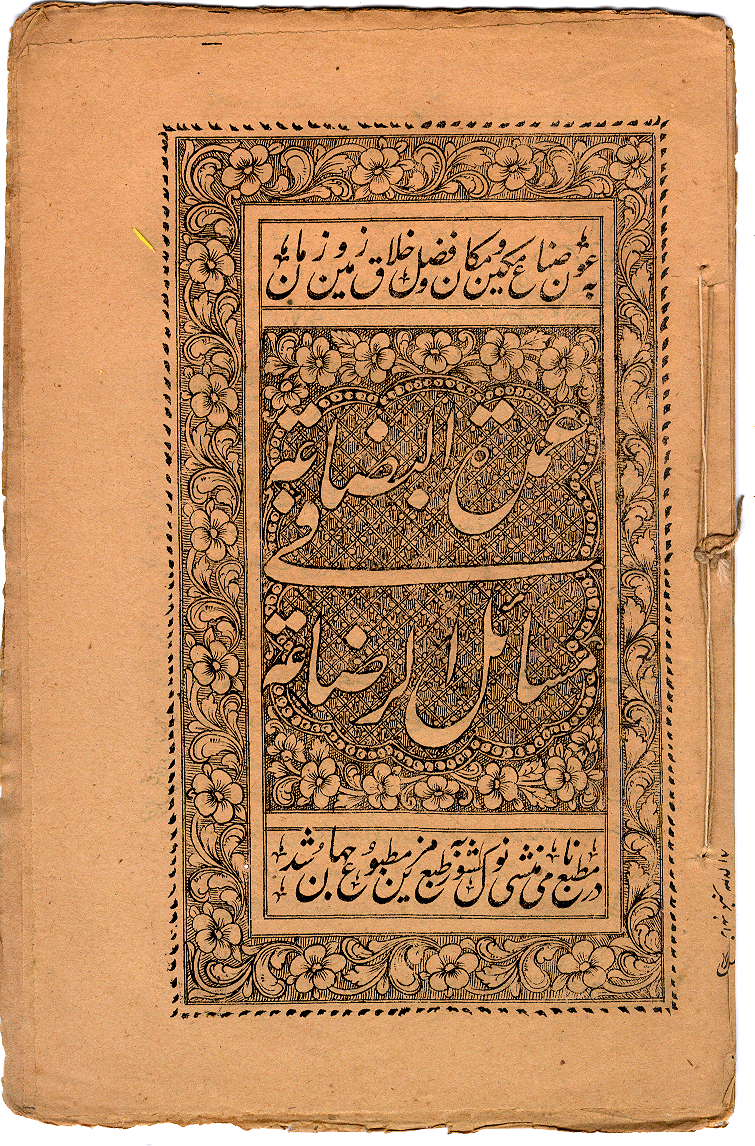 به عون صناع مکین و مکان و فضل خلاق زمین و زمان
عمدة البضاعة
فی
مسائل الرضاعة
در مطبع نامی منشی نولکشور به طبع مزین مطبوع جهان شد